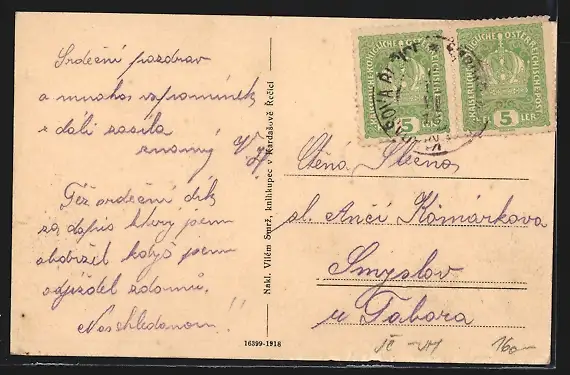 Srdečný pozdrav
a mnohos vzpomínek
z dáli zasílá
známý
Též srdečný dík
za dopis který jsem
obdržel když jsem
odjížděl z domů.
Naschledanou!!
Nakl. Vilém Smrž, knihkupec v Kardašově Řečici
16399-1918
KAISERLICHE KÖNIGLICHE ÖSTERREICHISCHE POST
5 HELLER
KAISERLICHE KÖNIGLICHE ÖSTERREICHISCHE POST
5 HELLER
Ctěná Slečna
sl. Anči Komárkova
Smyslov
u Tábora
160-